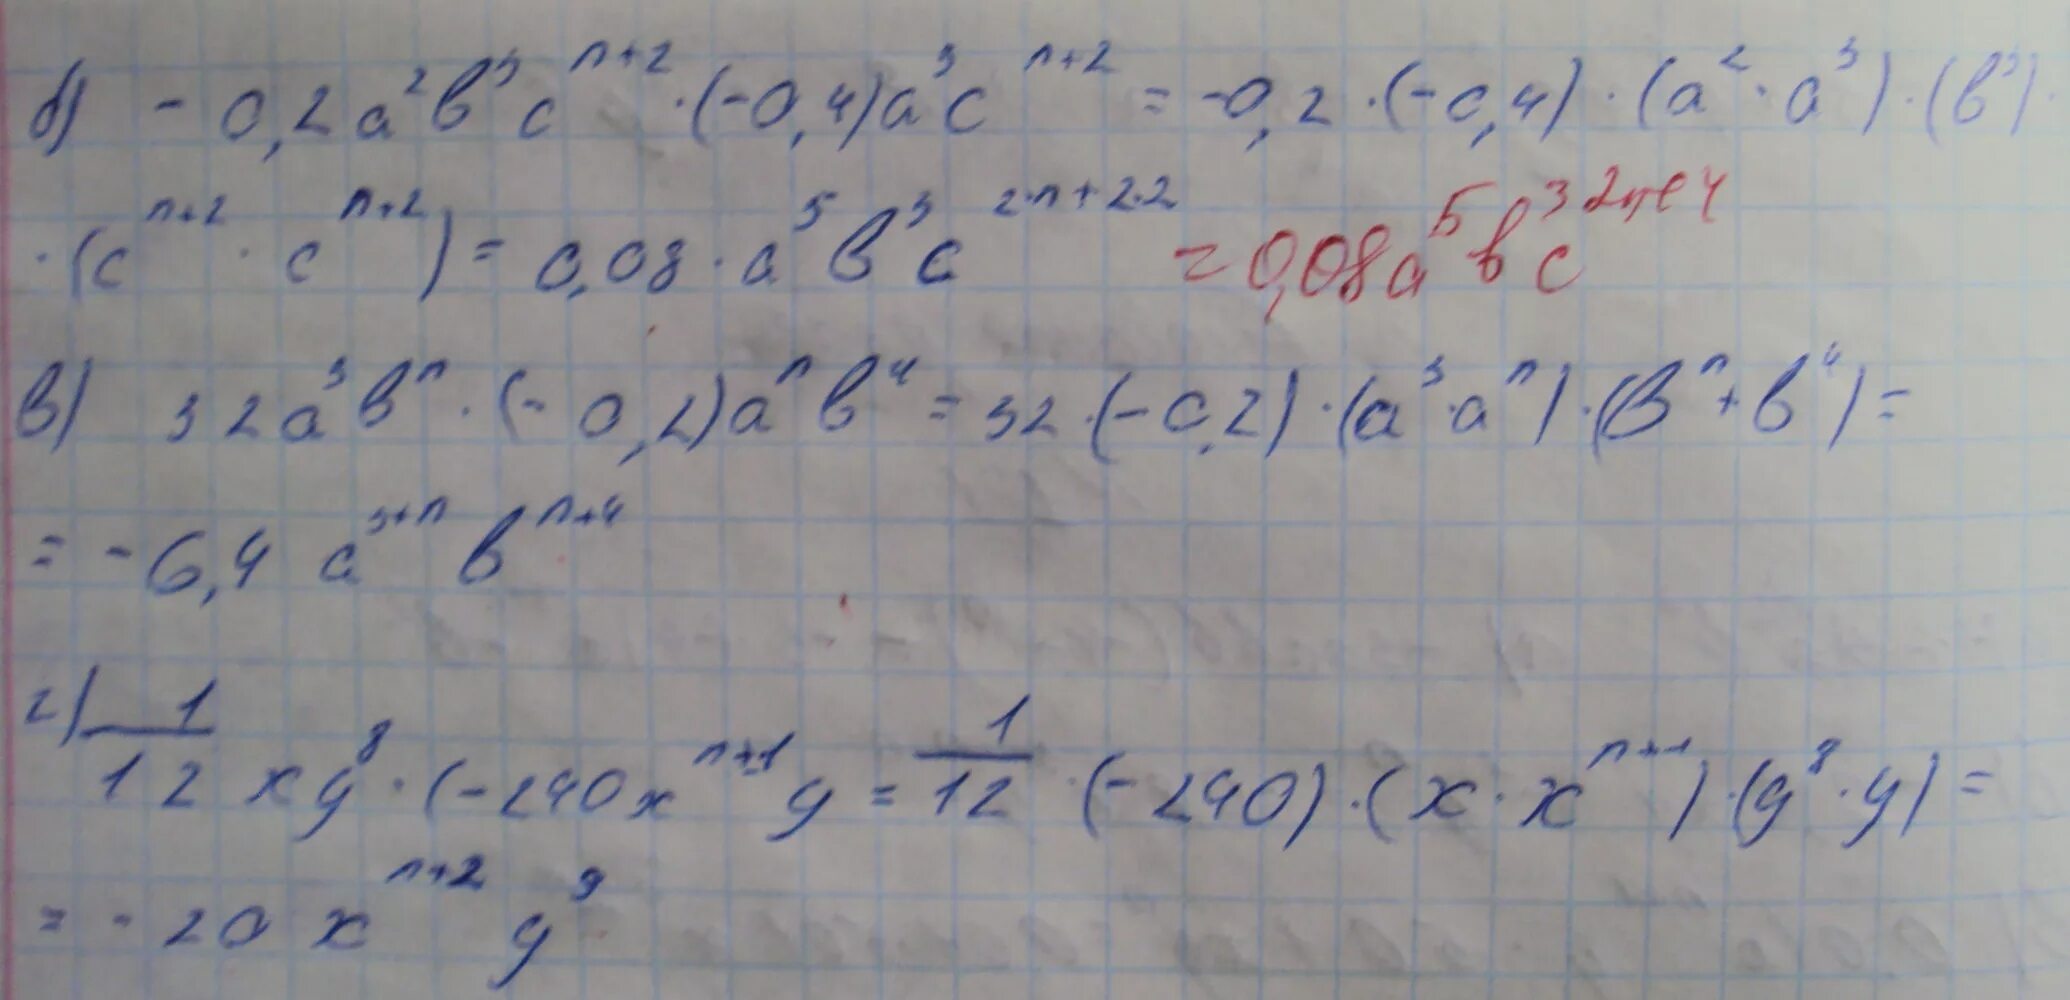 б) -0,2a²b³c^{n+2} · (-0,4)a³c^{n+2} = -0,2 · (-0,4) · (a² · a³) · (b³) ·
· (c^{n+2} · c^{n+2}) = 0,08 · a⁵b³c^{2·n+2·2} = 0,08a⁵b³c^{2n+4}
в) 32a³bⁿ · (-0,2)aⁿb⁴ = 32 · (-0,2) · (a³ · aⁿ) · (bⁿ + b⁴) =
= -6,4 a^{3+n} b^{n+4}
г) 1/12 xy⁸ · (-240x^{n+1}y = 1/12 · (-240) · (x · x^{n+1}) · (y⁸ · y) =
= -20 x^{n+2} y⁹